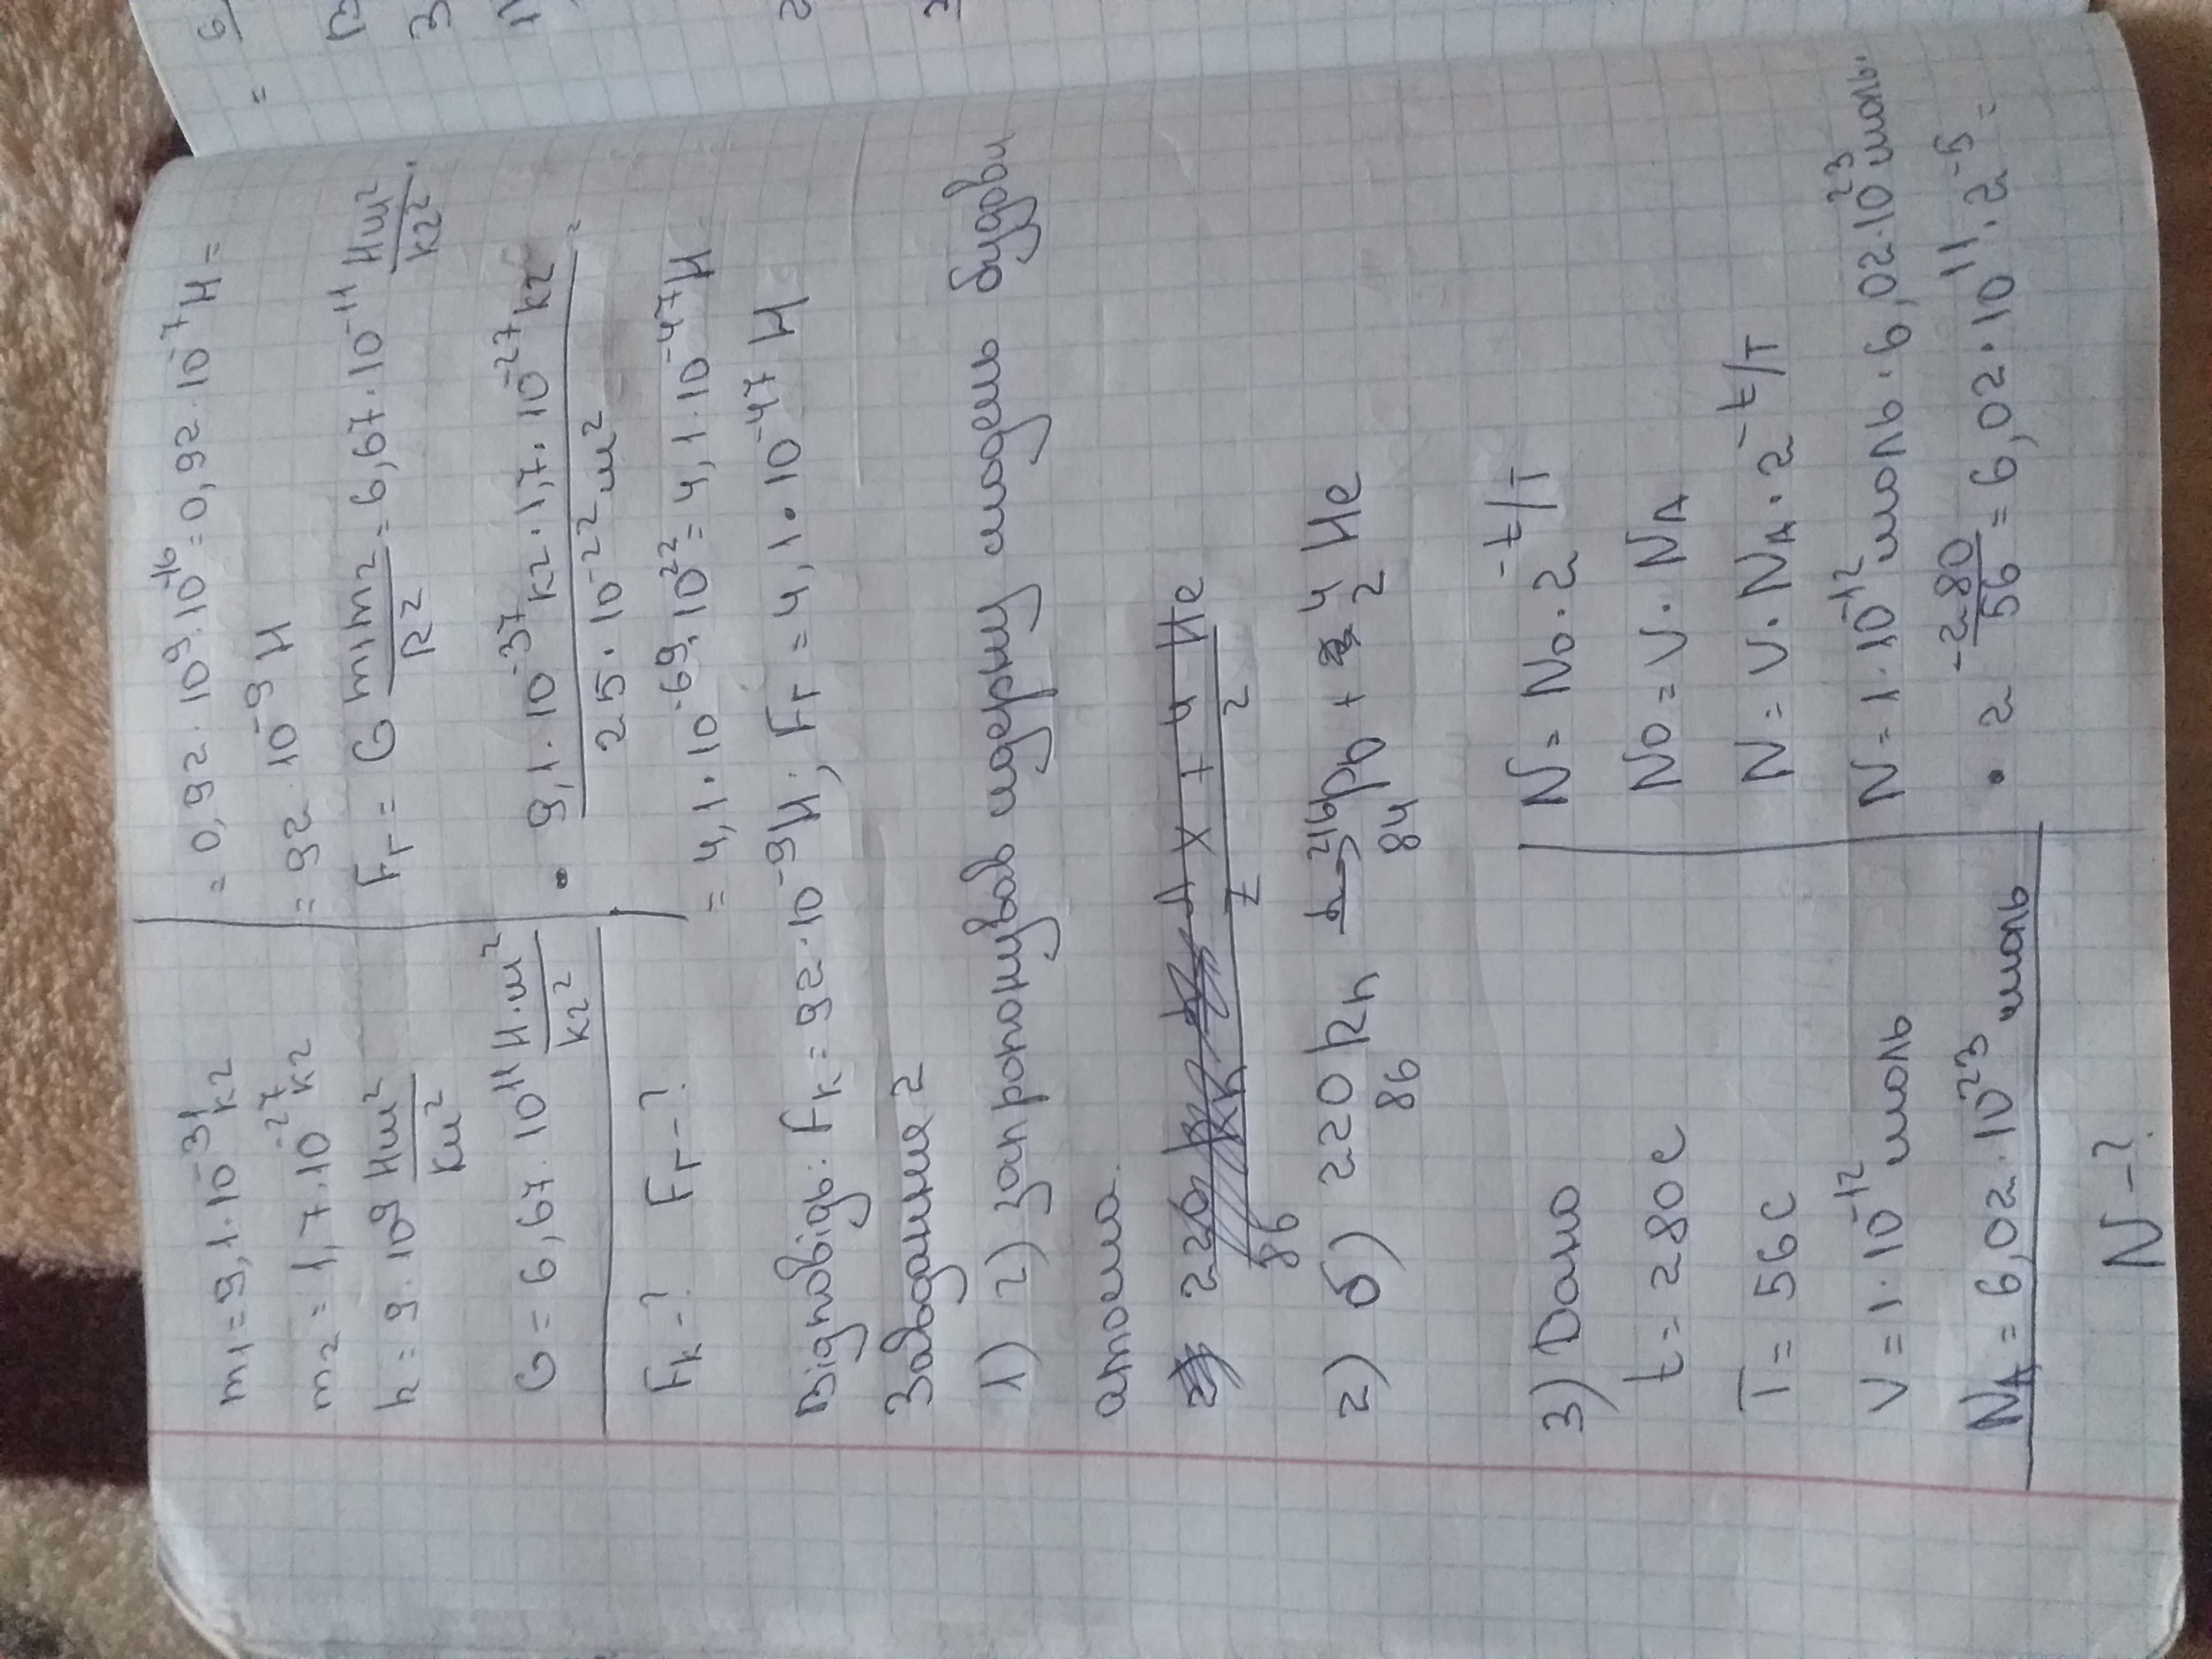 m1=9,1·10⁻³¹кг
m2=1,7·10⁻²⁷кг
k=9·10⁹ Нм²/Км²
G=6,67·10¹¹ Н·м²/кг²
Fк-? Fг-?
=0,92·10⁹·10⁻¹⁶=0,92·10⁻⁷Н=
=92·10⁻⁹Н
Fг=G m1m2/R²=6,67·10⁻¹¹ Нм²/кг²·
·9,1·10⁻³⁷кг·1,7·10⁻²⁷кг/25·10⁻²²м²=
=4,1·10⁻⁶⁹·10²²=4,1·10⁻⁴⁷Н.
Відповідь: Fк=92·10⁻⁹Н; Fг=4,1·10⁻⁴⁷Н
Завдання 2
1) г) запропонував ядерну модель будови
атома.
2) б) ²²⁰₈₆Rn → ²¹⁶₈₄Po + ⁴₂He
3) Dано
t=280с
T=56с
V=1·10⁻¹² моль
NA=6,02·10²³ моль
N-?
N=N0·2^-t/T
N0=V·NA
N=V·NA·2^-t/T
N=1·10⁻¹²моль·6,02·10²³моль·
·2^-280/56=6,02·10¹¹·2⁻⁵=